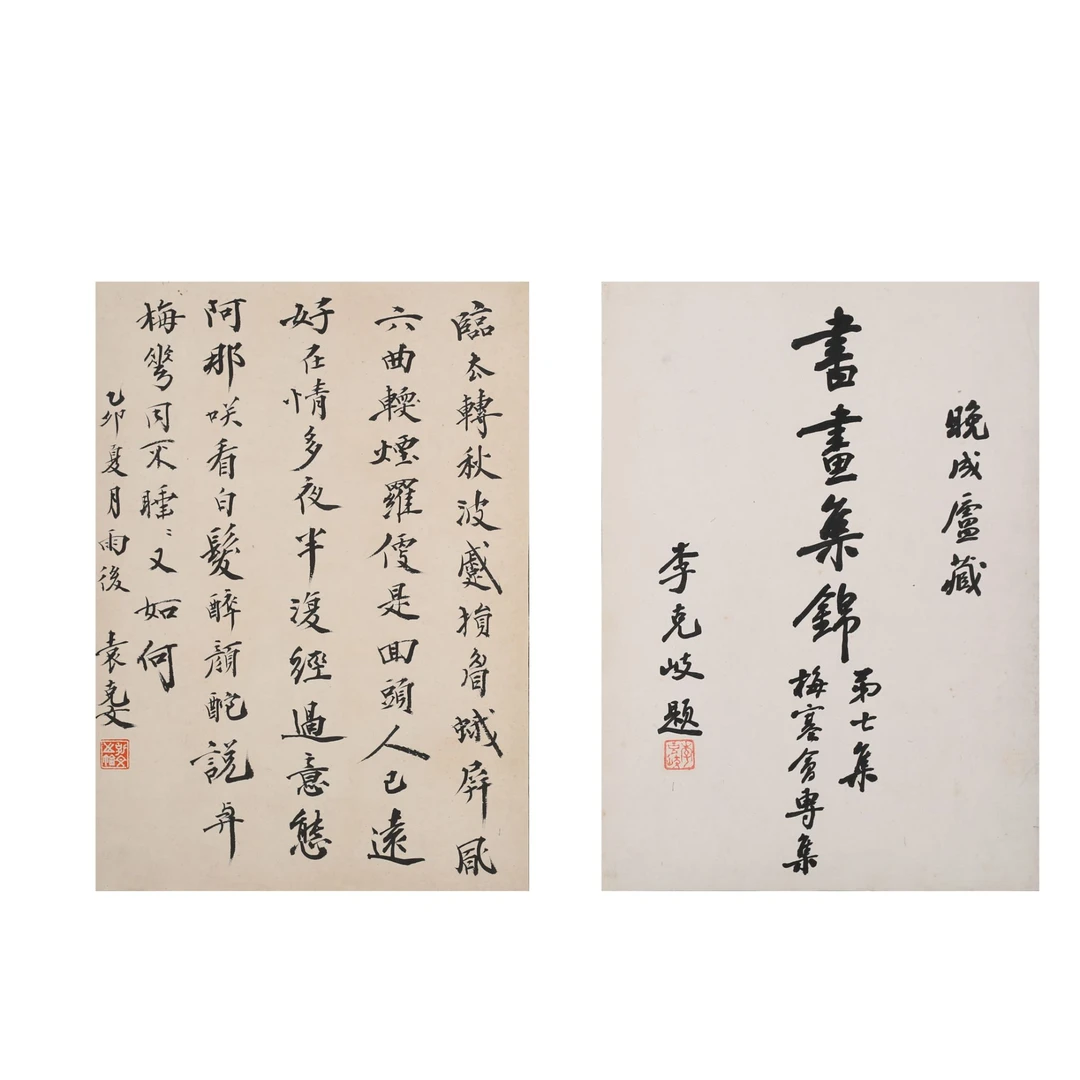 晚成廬藏
書畫集錦
第七集
梅寒會專集
李克岐題
臨去轉秋波蹙損眉蛾屏風
六曲輭煙羅便是回頭人已遠
好在情多夜半復經過意態
阿那咲看白髮醉顏酡說与
梅花同不睡〻又如何
乙卯夏月雨後 袁克文